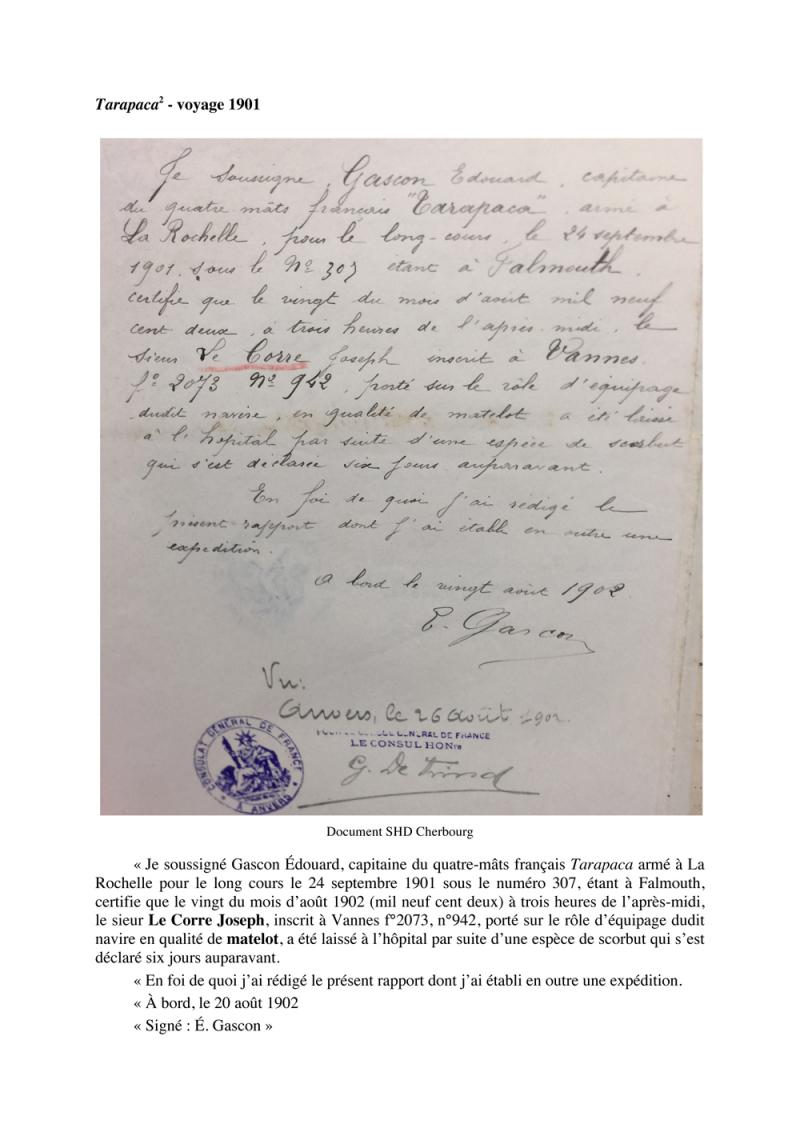 Tarapaca² - voyage 1901
Je soussigné, Gascon Edouard, capitaine
du quatre mâts français "Tarapaca", armé à
La Rochelle, pour le long-cours, le 24 septembre
1901, sous le Nº 307 étant à Falmouth,
certifie que le vingt du mois d'août mil neuf
cent deux, à trois heures de l'après-midi, le
sieur Le Corre Joseph inscrit à Vannes
fº 2073 Nº 942, porté sur le rôle d'équipage
dudit navire, en qualité de matelot a été laissé
à l'hôpital par suite d'une espèce de scorbut
qui s'est déclarée six jours auparavant.
En foi de quoi j'ai rédigé le
présent rapport dont j'ai établi en outre une
expédition.
A bord le vingt août 1902
E. Gascon
Vu:
Anvers, le 26 Août 1902.
GENERAL DE FRANCE
LE CONSUL HONre
CONSULAT GÉNÉRAL DE FRANCE
A ANVERS
Document SHD Cherbourg
« Je soussigné Gascon Édouard, capitaine du quatre-mâts français Tarapaca armé à La
Rochelle pour le long cours le 24 septembre 1901 sous le numéro 307, étant à Falmouth,
certifie que le vingt du mois d'août 1902 (mil neuf cent deux) à trois heures de l'après-midi,
le sieur Le Corre Joseph, inscrit à Vannes f°2073, n°942, porté sur le rôle d'équipage dudit
navire en qualité de matelot, a été laissé à l'hôpital par suite d'une espèce de scorbut qui s'est
déclaré six jours auparavant.
« En foi de quoi j'ai rédigé le présent rapport dont j'ai établi en outre une expédition.
« À bord, le 20 août 1902
« Signé : É. Gascon »